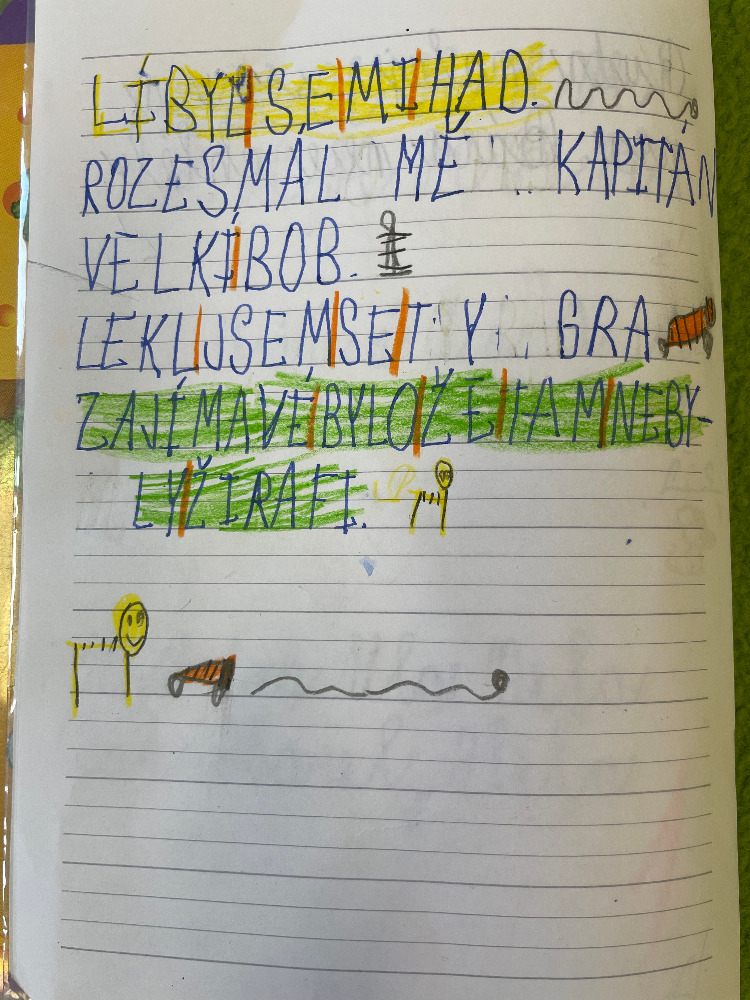 LÍBYL SE MI HAD.
ROZESMÁL MĚ KAPITÁN
VELKÍ BOB.
LEKL JSEM SE T Y GRA
ZAJÍMAVÉ BYLO ŽE TAM NEBY-
LY ŽIRAFI.